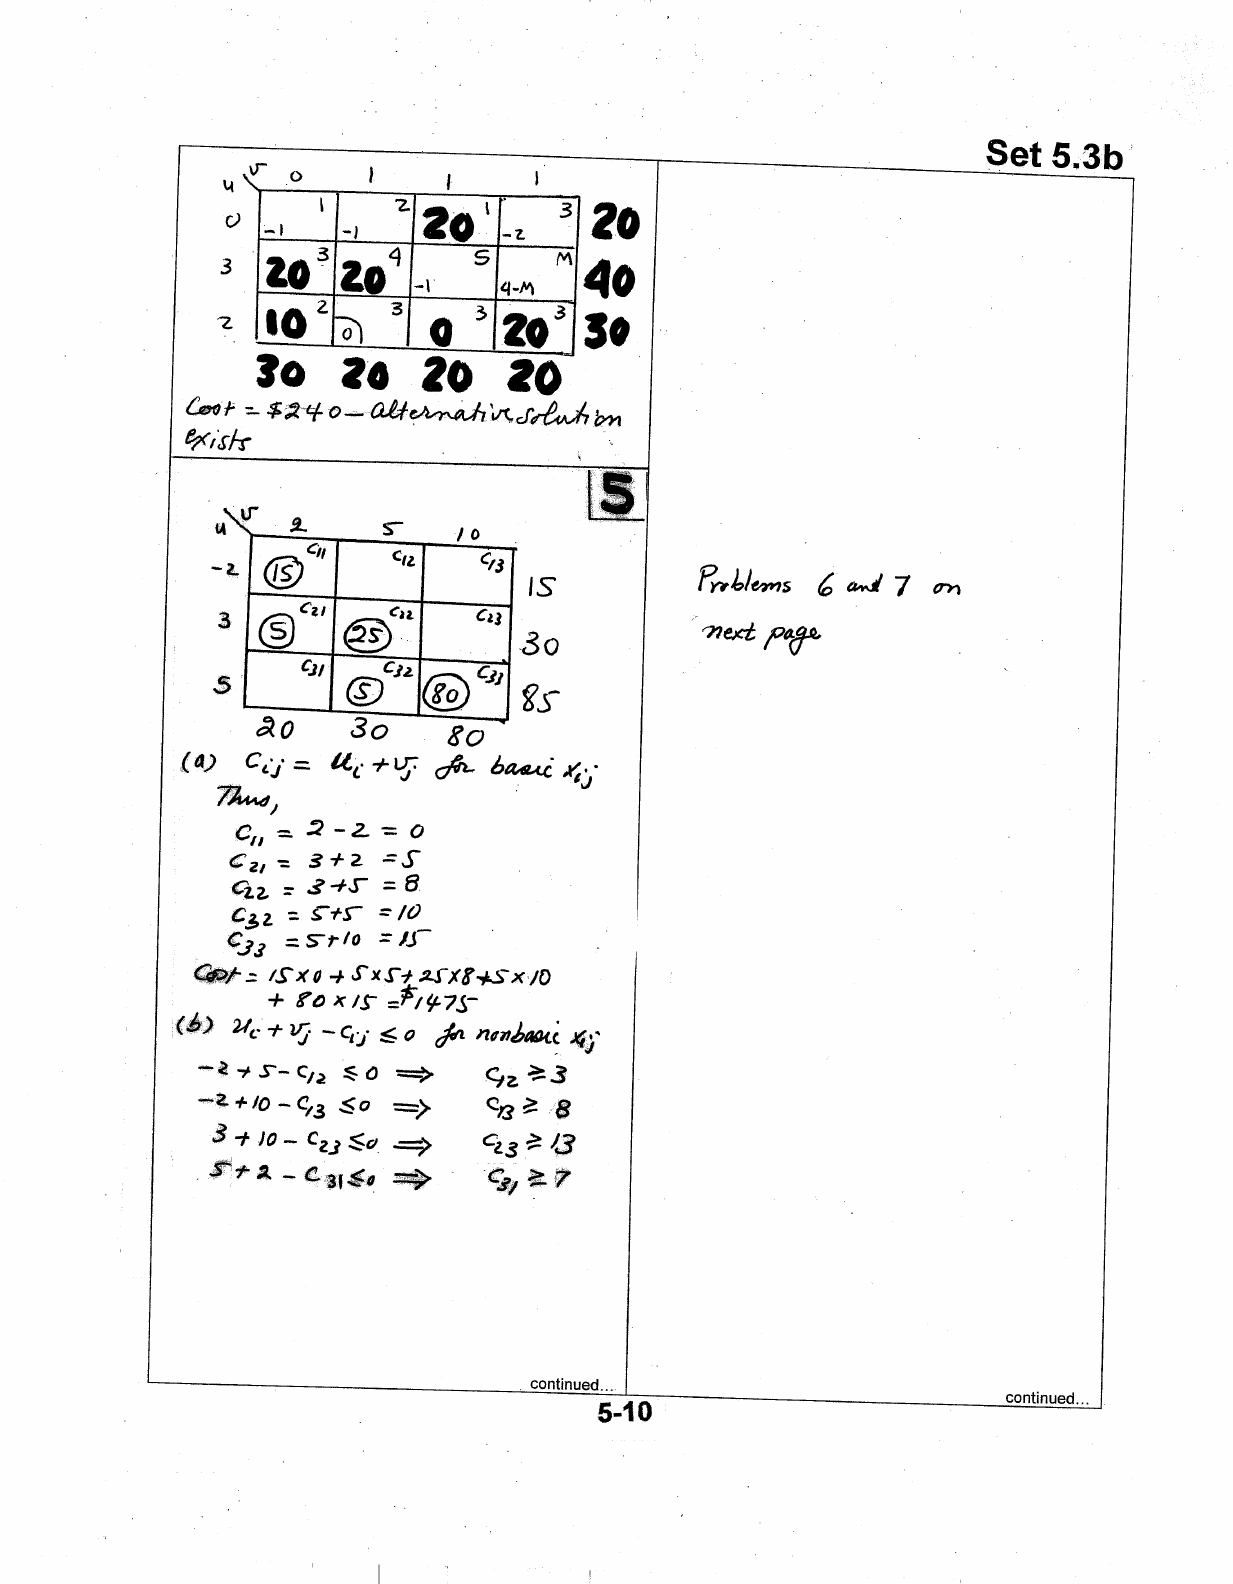 Set 5.3b
u v 0 1 1 1
0 1 -1 2 -1 20 1 3 -2 20
3 20 3 20 4 5 -1 M 4-M 40
2 10 2 3 0 0 3 20 3 30
30 20 20 20
Cost = $240 — alternative solution
exists
5
u v 2 5 10
-2 15 C11 C12 C13 15
3 5 C21 25 C22 C23 30
5 C31 5 C32 80 C33 85
20 30 80
(a) Cij = ui + vj for basic xij
Thus,
C11 = 2 - 2 = 0
C21 = 3 + 2 = 5
C22 = 3 + 5 = 8
C32 = 5 + 5 = 10
C33 = 5 + 10 = 15
Cost = 15 x 0 + 5 x 5 + 25 x 8 + 5 x 10
+ 80 x 15 = $1475
(b) ui + vj - cij ≤ 0 for nonbasic xij
-2 + 5 - C12 ≤ 0 ⟹ C12 ≥ 3
-2 + 10 - C13 ≤ 0 ⟹ C13 ≥ 8
3 + 10 - C23 ≤ 0 ⟹ C23 ≥ 13
5 + 2 - C31 ≤ 0 ⟹ C31 ≥ 7
continued...
Problems 6 and 7 on
next page
continued...
5-10